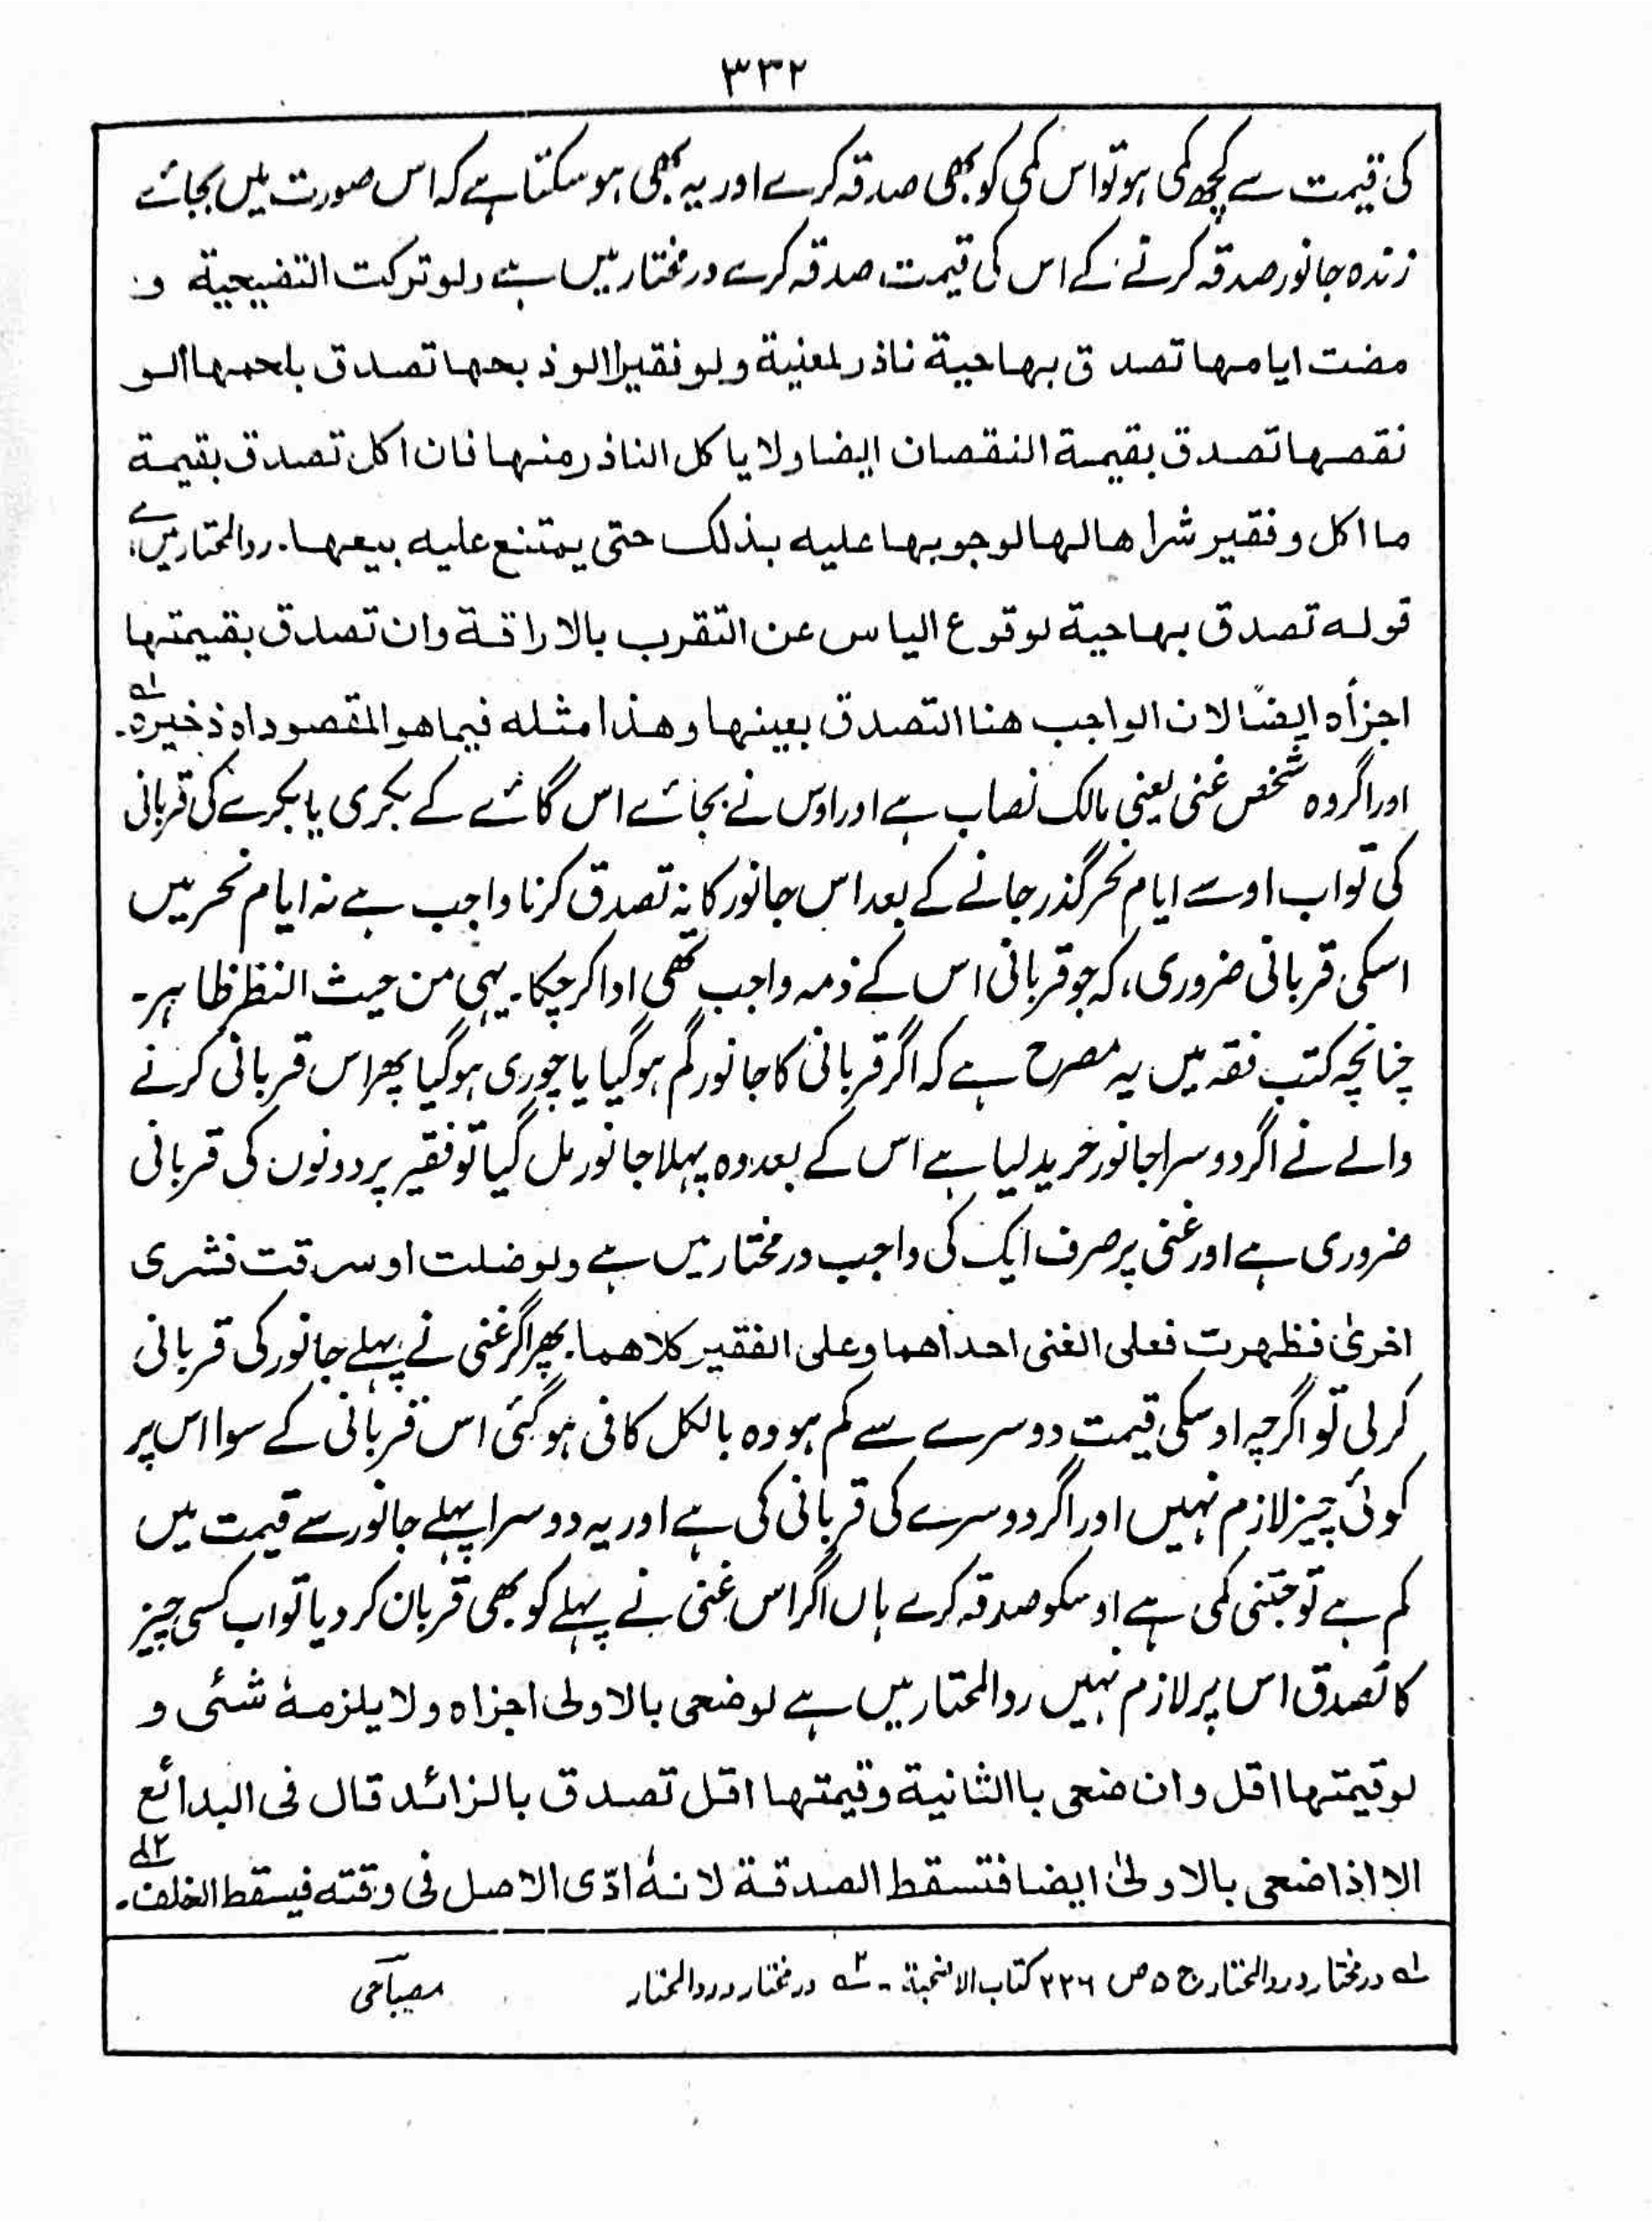 ۳۳۲
کی قیمت سے کچھ کمی ہو تو اس کمی کو بھی صدقہ کرے اور یہ بھی ہو سکتا ہے کہ اس صورت میں بجائے
زندہ جانور صدقہ کرنے کے اس کی قیمت صدقہ کرے درمختار میں ہے ولو ترکت التضیحیة و
مضت ایامها تصدق بها حیة ناذر لمعنیة ولو فقیرا الو ذبحها تصدق بلحمها الو
نقصها تصدق بقیمة النقصان ایضا ولا یاکل الناذر منها فان اکل تصدق بقیمة
ما اکل وفقیر شراها لها لوجوبها علیه بذلک حتی یمتنع علیه بیعها۔ ردالمحتار میں ہے
قوله تصدق بها حیة لوقوع الیاس عن التقرب بالاراقة وان تصدق بقیمتها
اجزأه ایضًا لان الواجب هنا التصدق بعینها وهذا مثله فیما هو المقصود اه ذخیرہ۔ ؎۱
اور اگر وہ شخص غنی یعنی مالک نصاب ہے اور اوس نے بجائے اس گائے کے بکری یا بکرے کی قربانی
کی تو اب اوسے ایام نحر گذر جانے کے بعد اس جانور کا نہ تصدق کرنا واجب ہے نہ ایام نحر میں
اسکی قربانی ضروری، کہ جو قربانی اس کے ذمہ واجب تھی ادا کر چکا۔ یہی من حیث النظر ظاہر۔
چنانچہ کتب فقہ میں یہ مصرح ہے کہ اگر قربانی کا جانور گم ہو گیا یا چوری ہو گیا پھر اس قربانی کرنے
والے نے اگر دوسرا جانور خرید لیا ہے اس کے بعد وہ پہلا جانور مل گیا تو فقیر پر دونوں کی قربانی
ضروری ہے اور غنی پر صرف ایک کی واجب درمختار میں ہے ولو ضلت او سرقت فشری
اخریٰ فظهرت فعلی الغنی احداهما وعلی الفقیر کلاهما۔ پھر اگر غنی نے پہلے جانور کی قربانی
کر لی تو اگرچہ اوسکی قیمت دوسرے سے کم ہو وہ بالکل کافی ہو گئی اس قربانی کے سوا اس پر
کوئی چیز لازم نہیں اور اگر دوسرے کی قربانی کی ہے اور یہ دوسرا پہلے جانور سے قیمت میں
کم ہے تو جتنی کمی ہے اوسکو صدقہ کرے ہاں اگر اس غنی نے پہلے کو بھی قربان کر دیا تو اب کسی چیز
کا تصدق اس پر لازم نہیں ردالمحتار میں ہے لو ضحی بالاولی اجزاه ولا یلزمهٗ شئی و
لو قیمتها اقل وان ضحی باالثانیة وقیمتها اقل تصدق بالزائد قال فی البدائع
الا اذا ضحی بالاولیٰ ایضا فتسقط الصدقة لانهٗ ادّی الاصل فی وقته فیسقط الخلف۔ ؎۲
؎۱ درمختار و ردالمحتار ج ۵ ص ۲۲۶ کتاب الاضحیة۔ ؎۲ درمختار و ردالمحتار مصباحی